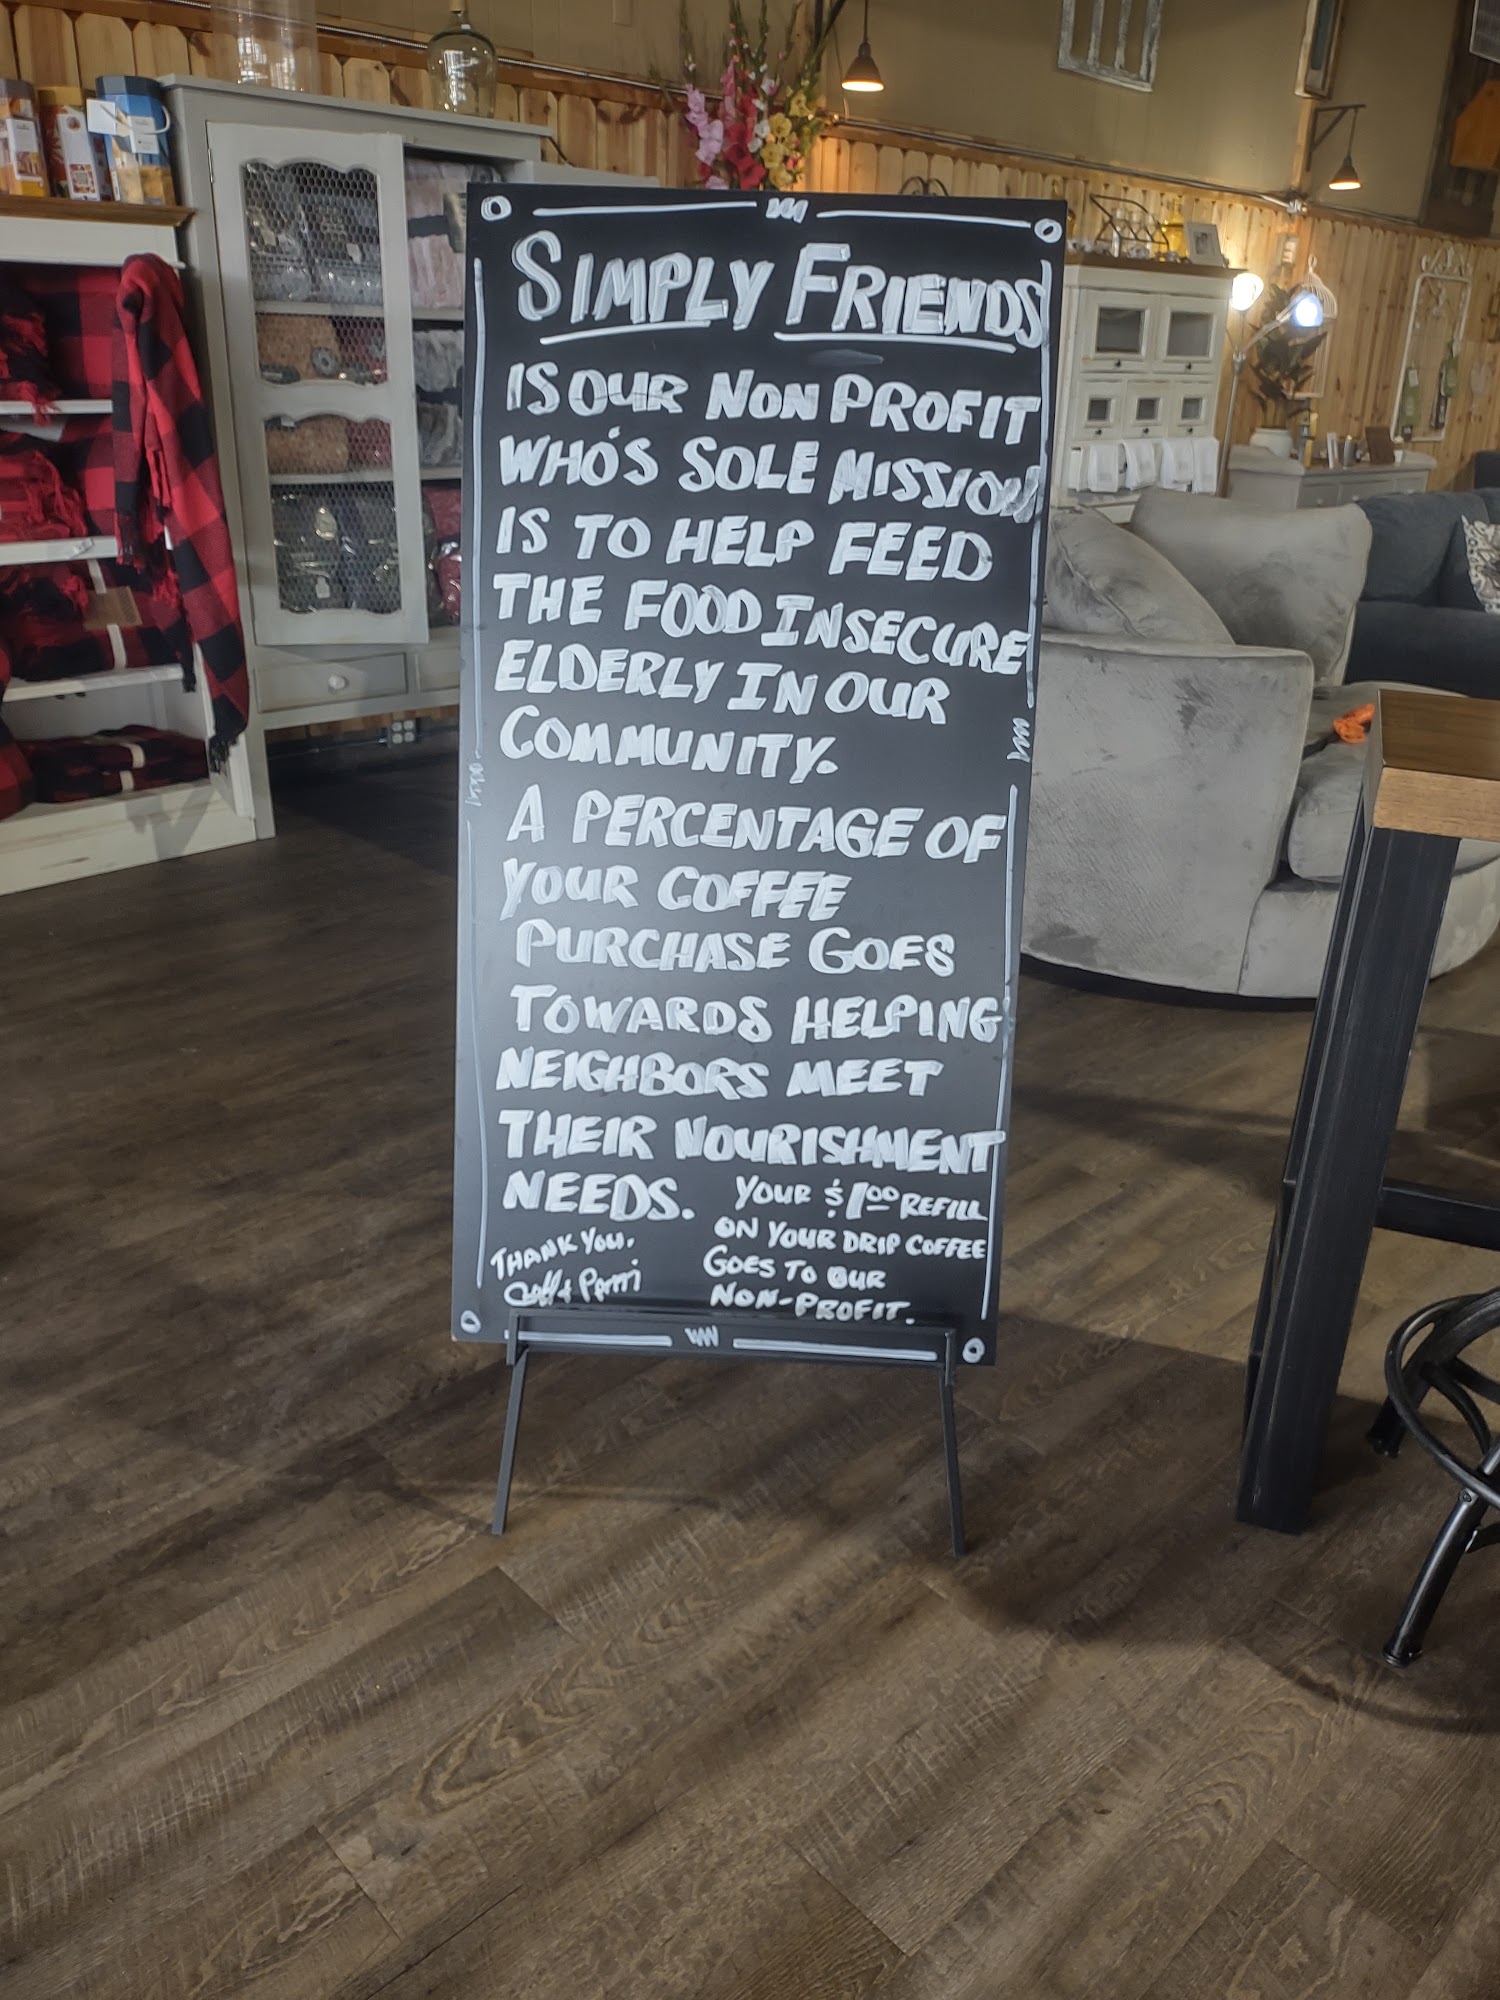 SIMPLY FRIENDS
IS OUR NON PROFIT
WHO'S SOLE MISSION
IS TO HELP FEED
THE FOOD INSECURE
ELDERLY IN OUR
COMMUNITY.
A PERCENTAGE OF
YOUR COFFEE
PURCHASE GOES
TOWARDS HELPING
NEIGHBORS MEET
THEIR NOURISHMENT
NEEDS.
THANK YOU.
& Patti
YOUR $1.00 REFILL
ON YOUR DRIP COFFEE
GOES TO OUR
NON-PROFIT.